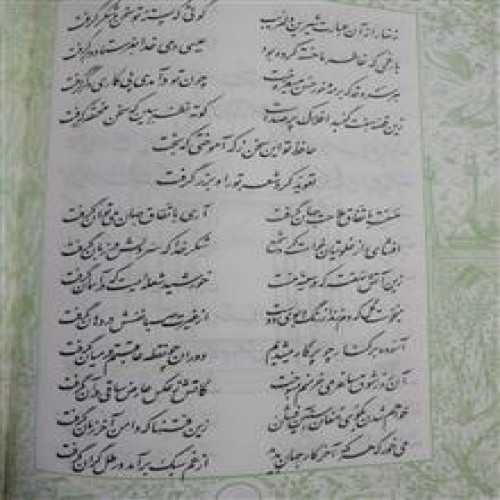 زنهار از آن عبارت شیرین دلفریب گویی که پسته تو سخن در شکر گرفت
باری که خاطر ما خسته کرده بود عیسی دمی خدا بفرستاد و برگرفت
هر سرو قد که بر مه و خور حسن می‌فروخت چون تو درآمدی پی کاری دگر گرفت
زین قصه هفت گنبد افلاک پر صداست کوته نظر ببین که سخن مختصر گرفت
حافظ تو این سخن ز که آموختی که بخت
تعویذ کرد شعر تو را و بزر گرفت
حسنت باتفاق ملاحت جهان گرفت آری باتفاق جهان می‌توان گرفت
افشای راز خلوتیان خواست کرد شمع شکر خدا که سر دلش در زبان گرفت
زین آتش نهفته که در سینه منست خورشید شعله‌ایست که در آسمان گرفت
میخواست گل که دم زند از رنگ و بوی دوست از غیرت صبا نفسش در دهان گرفت
آسوده بر کنار چو پرگار میشدم دوران چو نقطه عاقبتم در میان گرفت
آن روز شوق ساغر می خرمنم بسوخت کاتش ز عکس عارض ساقی در آن گرفت
خواهم شدن بکوی مغان آستین فشان زین فتنها که دامن آخر زمان گرفت
می خور که هر که آخر کار جهان بدید از غم سبک برآمد و رطل گران گرفت